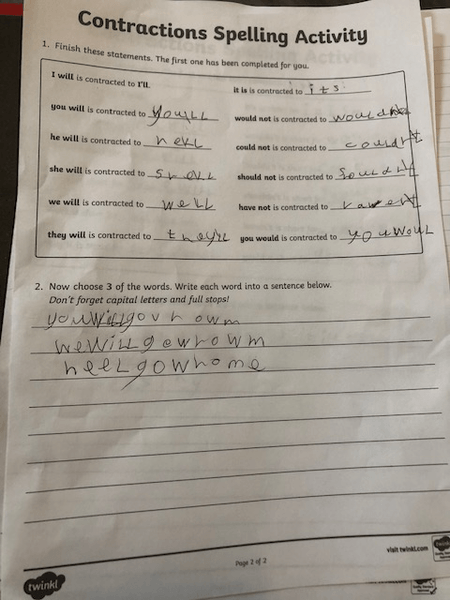 Contractions Spelling Activity
1. Finish these statements. The first one has been completed for you.
I will is contracted to I'll.
it is is contracted to its.
you will is contracted to you'll
would not is contracted to
he will is contracted to hell
could not is contracted to
she will is contracted to shell
should not is contracted to
we will is contracted to well
have not is contracted to
they will is contracted to they'll
you would is contracted to youwoul
2. Now choose 3 of the words. Write each word into a sentence below.
Don't forget capital letters and full stops!
youwillgowhowm
wewillgowhowm
heelgowhome
Page 2 of 2
visit twinkl.com
twinkl